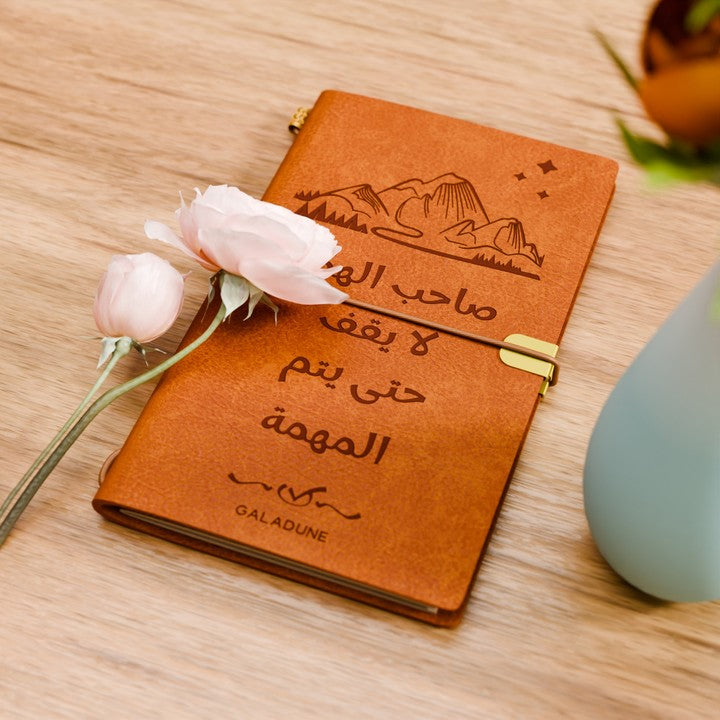 صاحب
لا يقف
حتى يتم
المهمة
GALADUNE